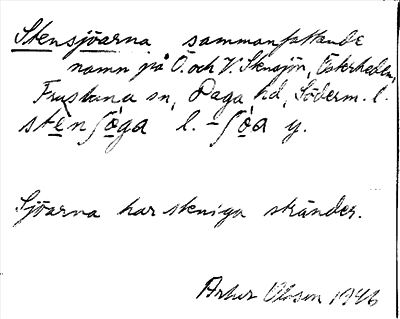 Stensjöarna sammanfattande
namn på Ö. och V. Stensjön, Österhedbn,
Frustuna sn, Daga hd, Söderm. l.
stènʃǫ̈ga l. -ʃǫ̈a y.
Sjöarna har steniga stränder.
Artur Olsson 1946